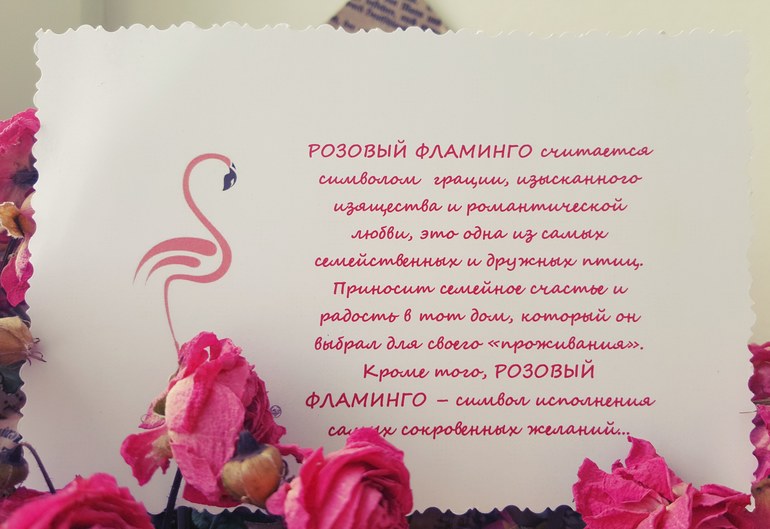 РОЗОВЫЙ ФЛАМИНГО считается
символом грации, изысканного
изящества и романтической
любви, это одна из самых
семейственных и дружных птиц.
Приносит семейное счастье и
радость в тот дом, который он
выбрал для своего «проживания».
Кроме того, РОЗОВЫЙ
ФЛАМИНГО – символ исполнения
самых сокровенных желаний...